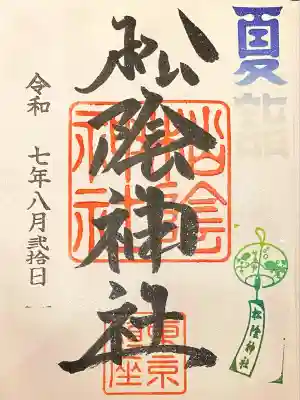 夏詣
松陰神社
松陰神社
東京
令和 七年八月弐拾日
松陰神社